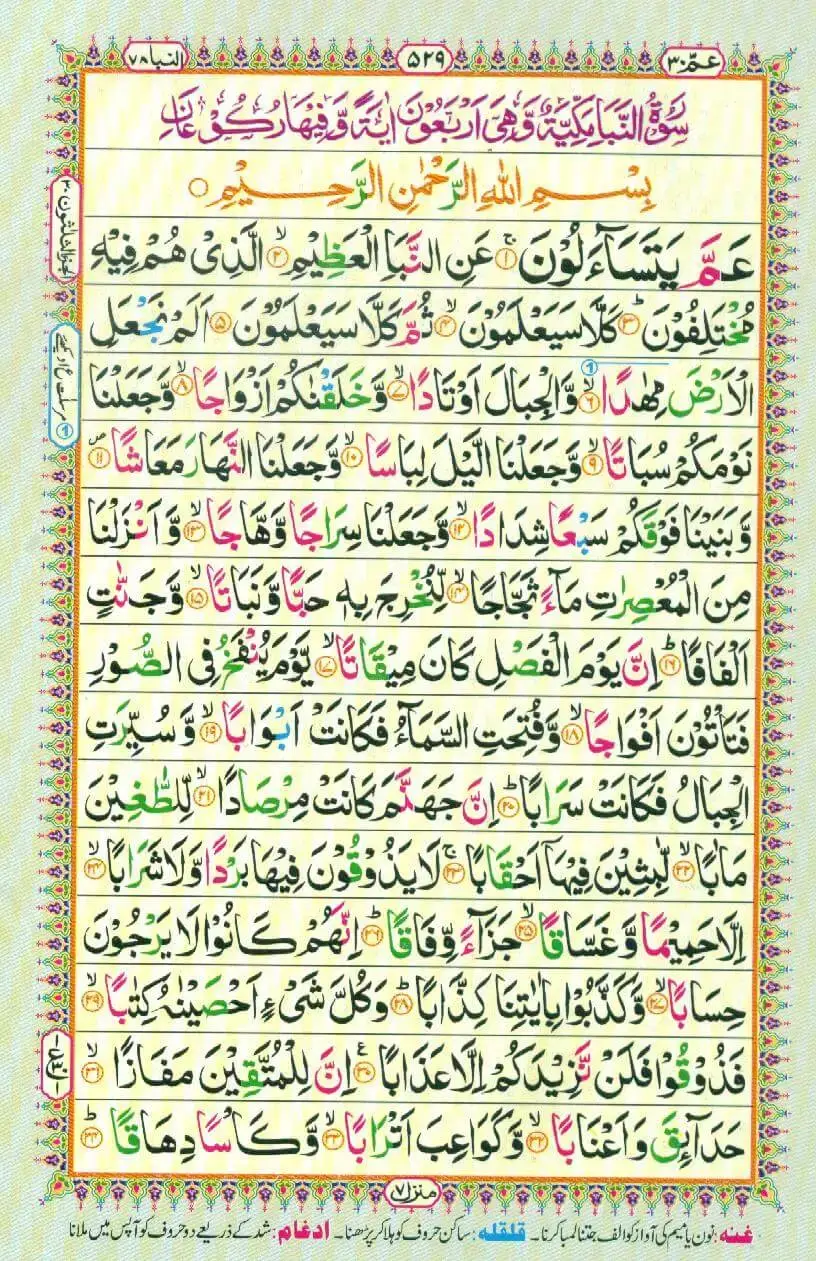 عمّ ٣٠
٥٢٩
النبا ٧٨
سُوْرَةُ النَّبَاِ مَكِّيَّةٌ وَّهِىَ اَرْبَعُوْنَ اٰيَةً وَّفِيْهَا رُكُوْعَانِ
بِسْمِ اللّٰهِ الرَّحْمٰنِ الرَّحِيْمِ ○
عَمَّ يَتَسَآءَلُوْنَ ۚ‏ ﴿۱﴾ عَنِ النَّبَاِ الْعَظِيْمِۙ‏ ﴿۲﴾ الَّذِىْ هُمْ فِيْهِ
مُخْتَلِفُوْنَؕ‏ ﴿۳﴾ كَلَّا سَيَعْلَمُوْنَۙ‏ ﴿۴﴾ ثُمَّ كَلَّا سَيَعْلَمُوْنَ‏ ﴿۵﴾ اَلَمْ نَجْعَلِ
الْاَرْضَ مِهٰدًاۙ‏ ﴿۶﴾ وَّالْجِبَالَ اَوْتَادًاۙ‏ ﴿۷﴾ وَّخَلَقْنٰكُمْ اَزْوَاجًاۙ‏ ﴿۸﴾ وَّجَعَلْنَا
نَوْمَكُمْ سُبَاتًاۙ‏ ﴿۹﴾ وَّجَعَلْنَا الَّيْلَ لِبَاسًاۙ‏ ﴿۱۰﴾ وَّجَعَلْنَا النَّهَارَ مَعَاشًا۪‏ ﴿۱۱﴾
وَّبَنَيْنَا فَوْقَكُمْ سَبْعًا شِدَادًاۙ‏ ﴿۱۲﴾ وَّجَعَلْنَا سِرَاجًا وَّهَّاجًاۙ‏ ﴿۱۳﴾ وَّاَنْزَلْنَا
مِنَ الْمُعْصِرٰتِ مَآءً ثَجَّاجًاۙ‏ ﴿۱۴﴾ لِّنُخْرِجَ بِهٖ حَبًّا وَّنَبَاتًاۙ‏ ﴿۱۵﴾ وَّجَنّٰتٍ
اَلْفَافًاؕ‏ ﴿۱۶﴾ اِنَّ يَوْمَ الْفَصْلِ كَانَ مِيْقَاتًاۙ‏ ﴿۱۷﴾ يَّوْمَ يُنْفَخُ فِى الصُّوْرِ
فَتَاْتُوْنَ اَفْوَاجًاۙ‏ ﴿۱۸﴾ وَّفُتِحَتِ السَّمَآءُ فَكَانَتْ اَبْوَابًاۙ‏ ﴿۱۹﴾ وَّسُيِّرَتِ
الْجِبَالُ فَكَانَتْ سَرَابًاؕ‏ ﴿۲۰﴾ اِنَّ جَهَنَّمَ كَانَتْ مِرْصَادًاۙ‏ ﴿۲۱﴾ لِّلطّٰغِيْنَ
مَاٰبًاۙ‏ ﴿۲۲﴾ لّٰبِثِيْنَ فِيْهَاۤ اَحْقَابًا‌ۚ‏ ﴿۲۳﴾ لَا يَذُوْقُوْنَ فِيْهَا بَرْدًا وَّلَا شَرَابًاۙ‏ ﴿۲۴﴾
اِلَّا حَمِيْمًا وَّغَسَّاقًاۙ‏ ﴿۲۵﴾ جَزَآءً وِّفَاقًاؕ‏ ﴿۲۶﴾ اِنَّهُمْ كَانُوْا لَا يَرْجُوْنَ
حِسَابًاۙ‏ ﴿۲۷﴾ وَّكَذَّبُوْا بِاٰيٰتِنَا كِذَّابًاؕ‏ ﴿۲۸﴾ وَكُلَّ شَىْءٍ اَحْصَيْنٰهُ كِتٰبًاۙ‏ ﴿۲۹﴾
فَذُوْقُوْا فَلَنْ نَّزِيْدَكُمْ اِلَّا عَذَابًا ﴿۳۰﴾ اِنَّ لِلْمُتَّقِيْنَ مَفَازًاۙ‏ ﴿۳۱﴾
حَدَآئِقَ وَاَعْنَابًاۙ‏ ﴿۳۲﴾ وَّكَوَاعِبَ اَتْرَابًاۙ‏ ﴿۳۳﴾ وَّكَاْسًا دِهَاقًاؕ‏ ﴿۳۴﴾
منزل ٧
غنه: نون یا میم کی آواز کو الف جتنا لمبا کرنا۔ قلقله: ساکن حروف کو ہلا کر پڑھنا۔ ادغام: شد کے ذریعے دو حروف کو آپس میں ملانا